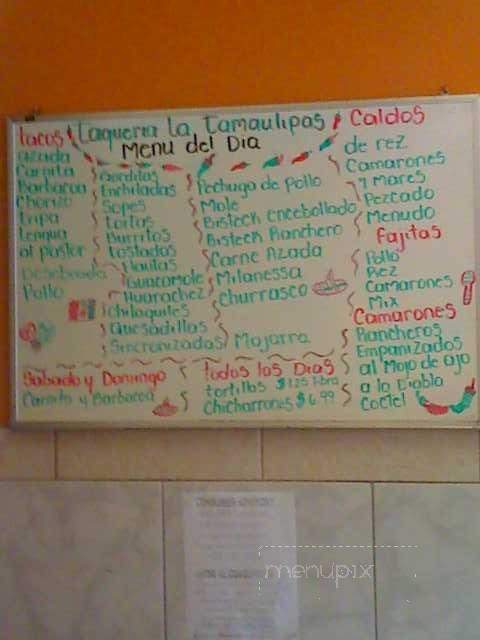 Taqueria La Tamaulipas
Menu del Dia
tacos
Azada
Carnita
Barbacoa
Chorizo
tripa
Lengua
al pastor
Desebrada
Pollo
Gorditas
Enchiladas
Sopes
tortas
Burritos
tostadas
Flautas
Guacamole
Huarachez
chilaquiles
Quesadillas
Sincronizadas
Pechuga de Pollo
Mole
Bisteck encebollado
Bisteck Ranchero
Carne Azada
Milanessa
Churrasco
Mojarra
Caldos
de rez
Camarones
7 Mares
Pezcado
Menudo
Fajitas
Pollo
Rez
Camarones
Mix
Camarones
Rancheros
Empanizados
al Mojo de ajo
a la Diabla
Coctel
Sabado y Domingo
Carnita y Barbacoa
todos los Dias
tortillas $1.25 Libra
Chicharrones $6.99
menupix